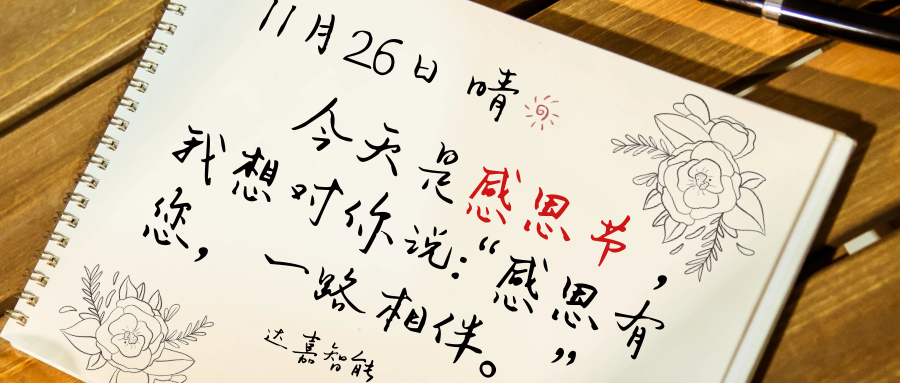 11月26日 晴
今天是感恩节，
我想对你说：“感恩有
您，一路相伴。”
达嘉智能